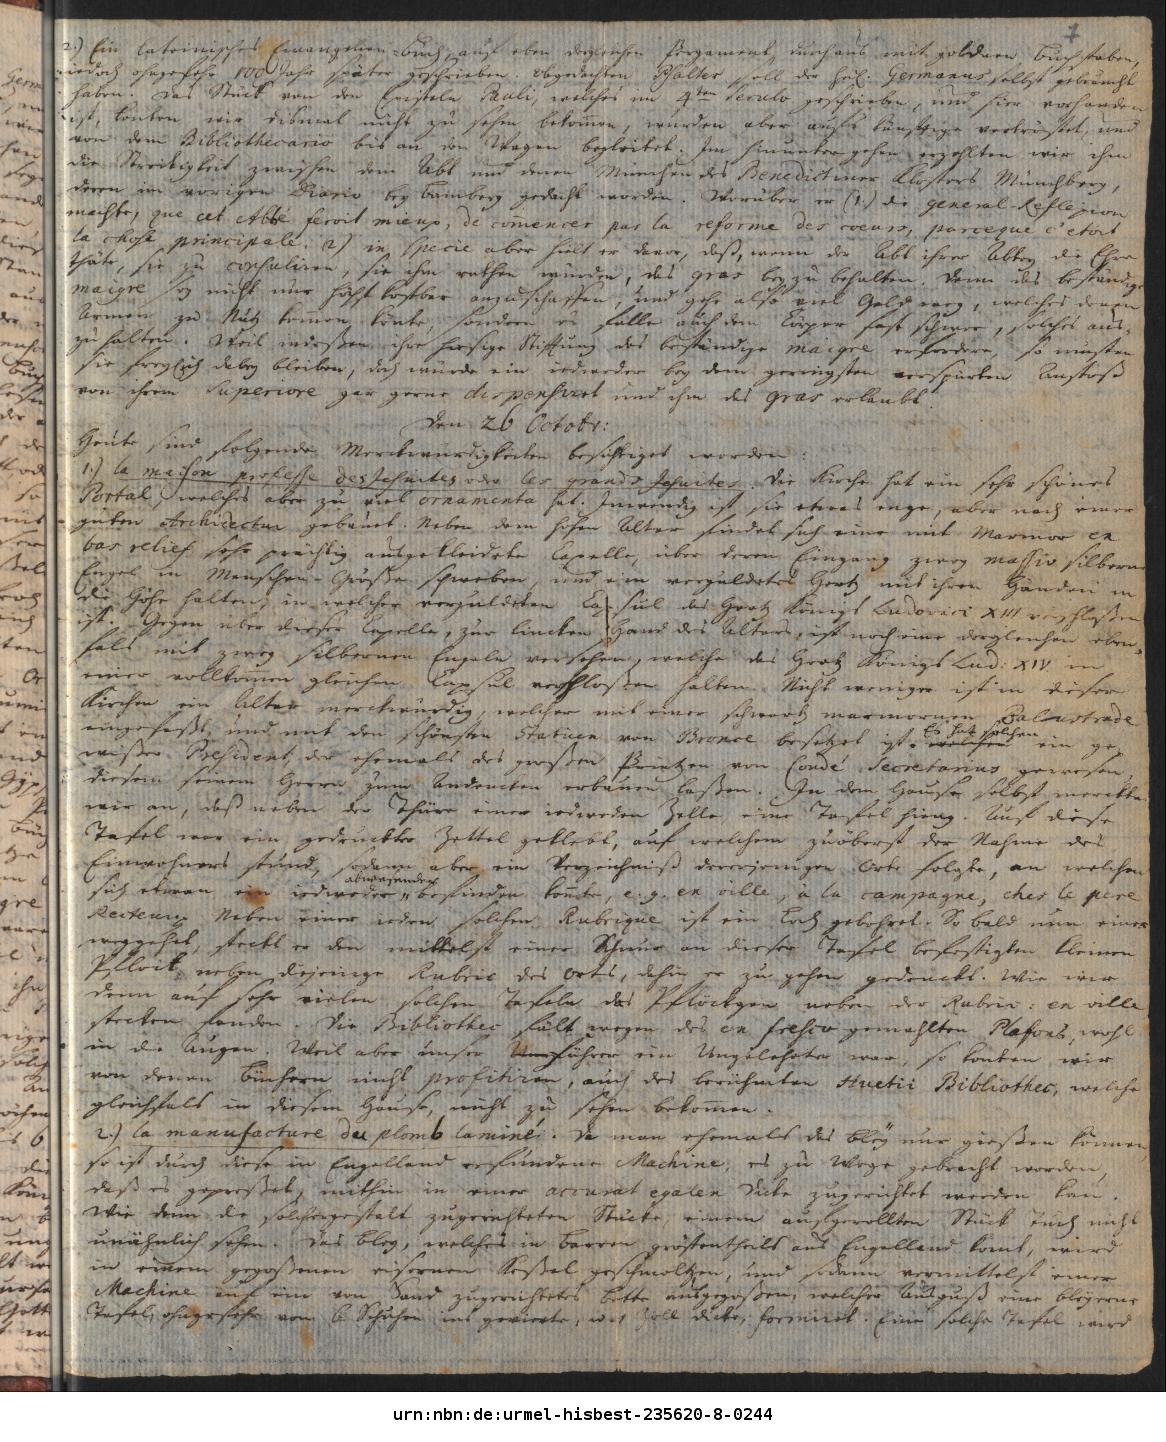 7
2.) Ein lateinisches Evangelien-Buch, auf eben dergleichen Pergament, durchaus mit goldnen Buchstaben,
iedoch ohngefehr 100 Jahr später geschrieben. Obgedachten Psalter soll der heil. Germanus selbst gebraucht
haben. Das Stück von den Episteln Pauli, welches im 4ten Seculo geschrieben, und hier vorhanden
ist, konten wir dismal nicht zu sehen bekom̄en, wurden aber aufs künftige vertröstet, und
von dem Bibliothecario bis an den Wagen begleitet. Im hinunter gehen erzehlten wir ihm
die Streitigkeit zwischen dem Abt und denen München des Benedictiner Closters Münchberg,
deren im vorigen Diario bey Bamberg gedacht worden. Worüber er (1.) die general-Reflexion
machte, que cet Abbé feroit mieux, de com̄encer par la reforme des coeurs, parceque c'etoit
la chose principale. 2) in specie aber hielt er davor, daß, wenn der Abt ihrer Abtey die Ehre
thäte, sie zu consuliren, sie ihm rathen würden, das gras beyzubehalten. Denn das beständige
maigre sey nicht nur höchst kostbar anzuschaffen, und gehe also viel Geld weg, welches denen
Armen zu Nutz kom̄en könte, sondern es falle auch dem Cörper fast schwer, solches aus-
zuhalten. Weil indeßen ihre hiesige Stiftung das beständige maigre erfordere, so müsten
sie freylich dabey bleiben, doch würde ein iedweder bey dem geringsten verspürten Anstoß
von ihrem Superiore gar gerne dispensiret und ihm das gras erlaubt.
Den 26 Octobr:
Heute sind folgende Merckwürdigkeiten besichtiget worden:
1.) la maison professe des Jesuites oder les grands Jesuites. Die Kirche hat ein sehr schönes
Portal, welches aber zu viel ornamenta hat. Inwendig ist sie etwas enge, aber nach einer
guten Architectur gebauet. Neben dem hohen Altar findet sich eine mit Marmor en
bas relief sehr prächtig ausgekleidete Capelle, über deren Eingang zwey massiv silberne
Engel in Menschen-Größe schweben, und ein vergüldetes Hertz mit ihren Händen in
die Höhe halten, in welcher vergüldeten Capsul das Hertz Königs Ludovici XIII verschloßen
ist. Gegen über dieser Capelle, zur lincken Hand des Altars, ist noch eine dergleichen eben-
fals mit zwey silbernen Engeln versehen, welche das Hertz Königs Lud: XIV in
einer vollkom̄en gleichen Capsul verschloßen halten. Nicht weniger ist in dieser
Kirchen ein Altar merckwürdig, welcher mit einer schwartz marmornen Balustrade
eingefaßt, und mit den schönsten Statuen von Bronce besetzet ist. Es hat solchen ein ge-
wißer President, der ehemals des großen Printzen von Condé Secretarius gewesen,
diesem seinem Herrn zum Andencken erbauen laßen. In dem Hause selbst merckten
wir an, daß neben der Thüre einer iedweden Zelle, eine Tafel hieng. Auf diese
Tafel war ein gedruckter Zettel geklebt, auf welchem zuöberst der Nahme des
Einwohners stund, sodann aber ein Verzeichniß dererienigen Orte folgte, an welchen
sich etwan ein iedweder abwesender befinden kön̄te, e. g. en ville, à la campagne, ches le pere
Recteur. Neben einer ieden solchen Rubrique ist ein Loch gebohret. So bald nun einer
weggehet, steckt er den mittelst einer Schnur an dieser Tafel befestigten kleinen
Pflock neben diejenige Rubric des Orts, dahin er zu gehen gedenckt. Wie wir
denn auf sehr vielen solchen Tafeln das Pflöckgen neben der Rubric: en ville
stecken fanden. Die Bibliothec fält wegen des en fresco gemahlten Plafons, wohl
in die Augen. Weil aber unser Führer ein Ungelehrter war, so konten wir
von denen Büchern nicht profitiren, auch des berühmten Huetii Bibliothec, welche
gleichfals in diesem Hause, nicht zu sehen bekom̄en.
2.) la manufacture du plomb laminé. Da man ehemals das Bley nur gießen können,
so ist durch diese in Engelland erfundene Machine, es zu Wege gebracht worden,
daß es gepreßet, mithin in einer accurat egalen Dicke zugerichtet werden kan.
Wie denn die solchergestalt zugerichteten Stücke, einem aufgerollten Stück Tuch nicht
unähnlich sehen. Das Bley, welches in Barren gröstentheils aus Engelland komt, wird
in einem gegoßenen eisernen Keßel geschmoltzen, und sodann vermittelst einer
Machine auf ein von Sand zugerichtetes Bette ausgegossen, welcher Ausguß eine bleyerne
Tafel, ohngefehr von 6 Schuhen ins gevierte, Zoll dicke, formiret. Eine solche Tafel wird
urn:nbn:de:urmel-hisbest-235620-8-0244